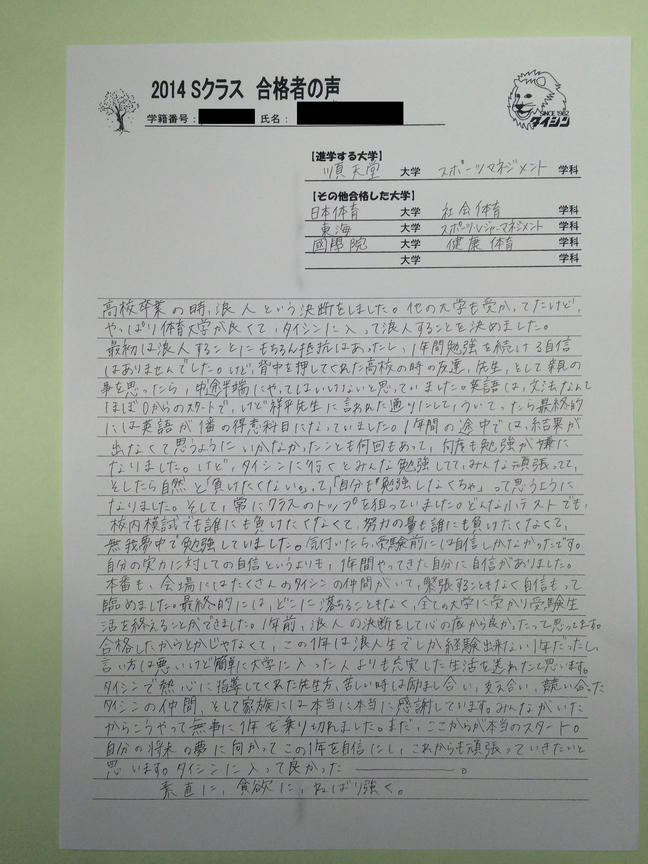 2014 Sクラス 合格者の声
学籍番号: 氏名:
SINCE 1982
タイシン
【進学する大学】
順天堂 大学 スポーツマネジメント 学科
【その他合格した大学】
日本体育 大学 社会体育 学科
東海 大学 スポーツ・レジャーマネジメント 学科
國學院 大学 健康体育 学科
大学 学科
高校卒業の時、浪人という決断をしました。他の大学も受かってたけど、
やっぱり体育大学が良くて、タイシンに入って浪人することを決めました。
最初は浪人することにもちろん抵抗はあったし、1年間勉強を続ける自信
はありませんでした。けど、背中を押してくれた高校の時の友達、先生、そして親の
事を思ったら、中途半端にやってはいけないと思っていました。英語は、文法なんて
ほぼ0からのスタートで、けど祥平先生に言われた通りにして、ついてったら最終的
には英語が1番の得意科目になっていました。1年間の途中では、結果が
出なくて思うようにいかなかったことも何回もあって、何度も勉強が嫌に
なりました。けど、タイシンに行くとみんな勉強してて、みんな頑張ってて、
そしたら自然と「負けたくない。」って、「自分も勉強しなくちゃ」って思うように
なりました。そして、常にクラスのトップを狙っていました。どんな小テストでも、
校内模試でも誰にも負けたくなくて、努力の量も誰にも負けたくなくて、
無我夢中で勉強していました。気付いたら、受験前には自信しかなかったです。
自分の実力に対しての自信というよりも、1年間やってきた分に自信がありました。
本番も、会場にはたくさんのタイシンの仲間がいて、緊張することもなく自信もって
臨めました。最終的には、どこに落ちることもなく、全ての大学に受かり受験生
活を終えることができました。1年前、浪人の決断をして心の底から良かったって思ってます。
合格したからとかじゃなくて、この1年は浪人生でしか経験出来ない1年だったし、
言い方は悪いけど簡単に大学に入った人よりも充実した生活を送れたと思います。
タイシンで熱心に指導してくれた先生方、苦しい時は励まし合い、支え合い、競い合った
タイシンの仲間、そして家族には本当に本当に感謝しています。みんながいた
からこうやって無事に1年を乗り切れました。まだ、ここからが本当のスタート。
自分の将来の夢に向かってこの1年を自信にし、これからも頑張っていきたいと
思います。タイシンに入って良かった――――――。
素直に、貪欲に、ねばり強く。